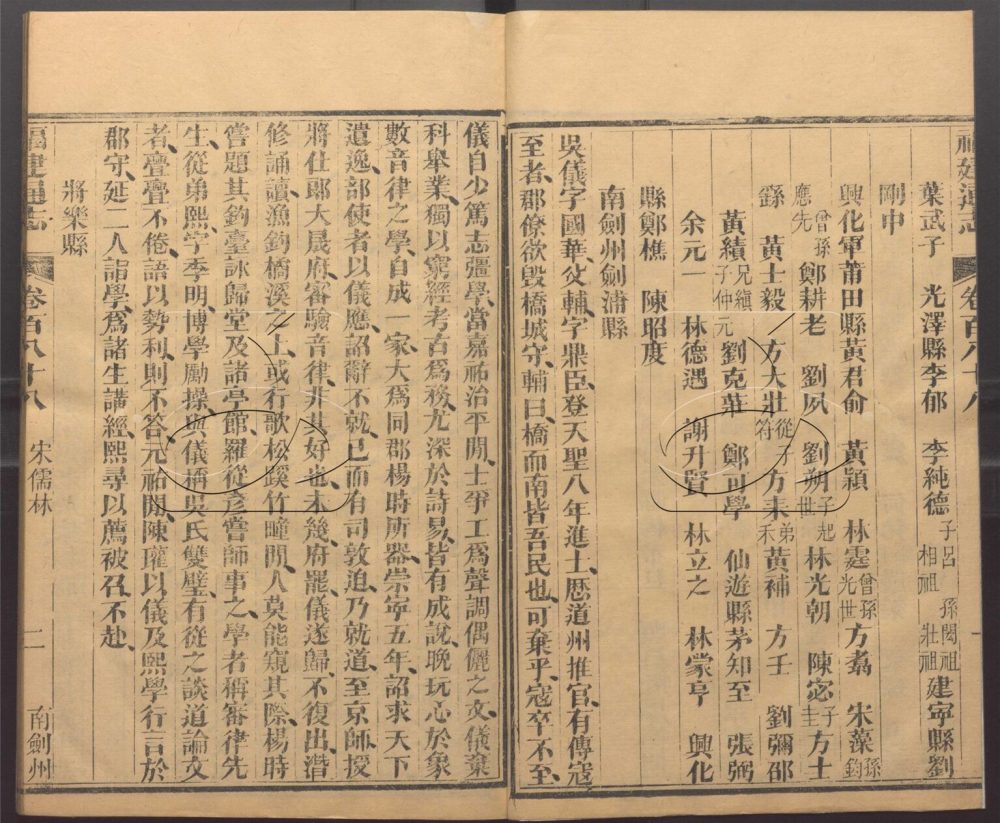 福建通志 卷百八十八 一
葉武子 光澤縣李郁 李純德子呂 相祖 孫閎祖 壯祖建寧縣劉
剛中
興化軍莆田縣黃君俞 黃穎 林霆曾孫光世方翥 宋藻孫鈞
曾孫應先鄭耕老 劉夙 劉朔子起世林光朝 陳宓子圭方士
繇 黃士毅 方大壯從子符方耒弟禾黃補 方壬 劉彌邵
黃績兄縝子仲元劉克莊 鄭可學 仙遊縣茅知至 張弼
余元一 林德遇 謝升賢 林立之 林蒙亨 興化
縣鄭樵 陳昭度
南劍州劍浦縣
吳儀字國華父輔字鼎臣登天聖八年進士歷道州推官有傳寇
至者郡僚欲毀橋城守輔曰橋而南皆吾民也可棄乎寇卒不至
儀自少篤志彊學當嘉祐治平閒士爭工爲聲調偶儷之文儀棄
科舉業獨以窮經考古爲務尤深於詩易皆有成說晚玩心於象
數音律之學自成一家大爲同郡楊時所器崇寧五年詔求天下
遺逸部使者以儀應詔辭不就已而有司敦迫乃就道至京師授
將仕郎大晟府審驗音律非其好也未幾府罷儀遂歸不復出潛
修誦讀漁釣橋溪之上或行歌松蹊竹疃閒人莫能窺其際楊時
嘗題其釣臺詠歸堂及諸亭館羅從彥嘗師事之學者稱審律先
生從弟熙字季明博學勵操與儀稱吳氏雙璧有從之談道論文
者亹亹不倦語以勢利則不答元祐閒陳瓘以儀及熙學行言於
郡守延二人詣學爲諸生講經熙尋以薦被召不赴
將樂縣
福建通志 卷百八十八 宋儒林 二 南劍州